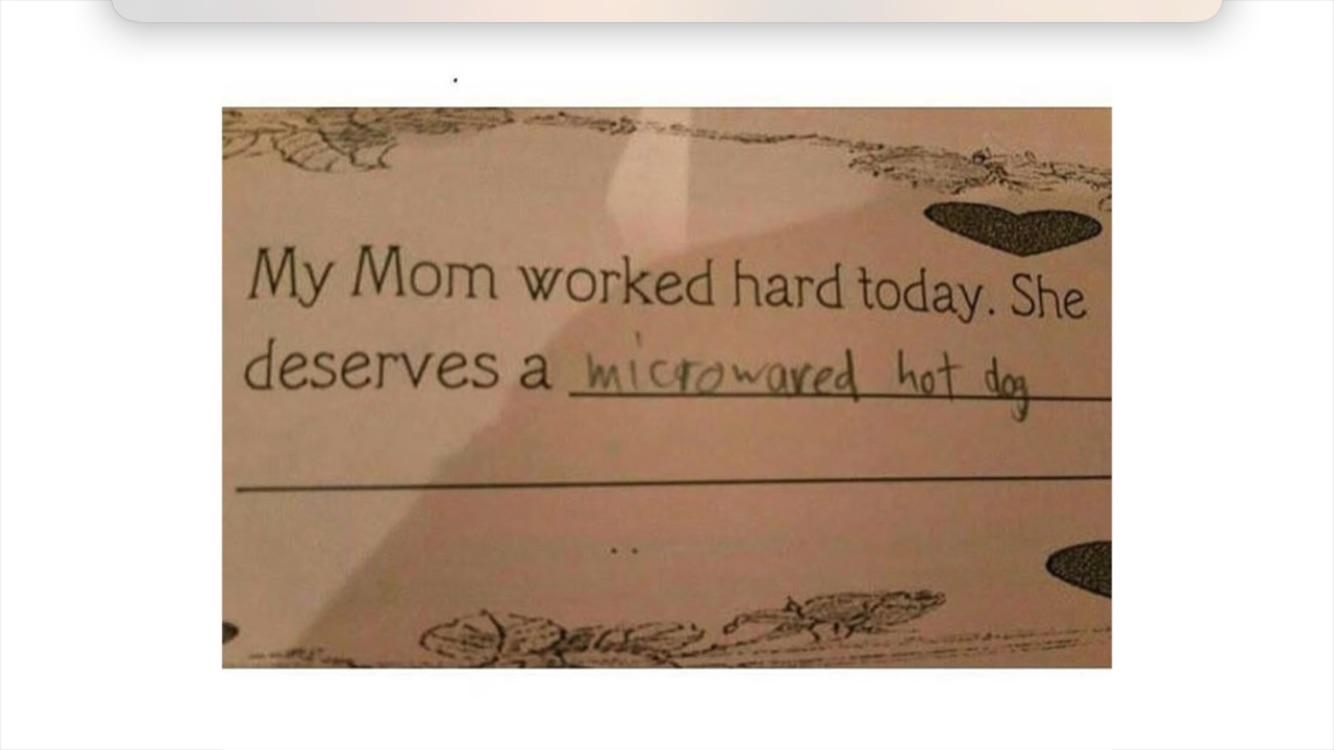 My Mom worked hard today. She
deserves a microwaved hot dog